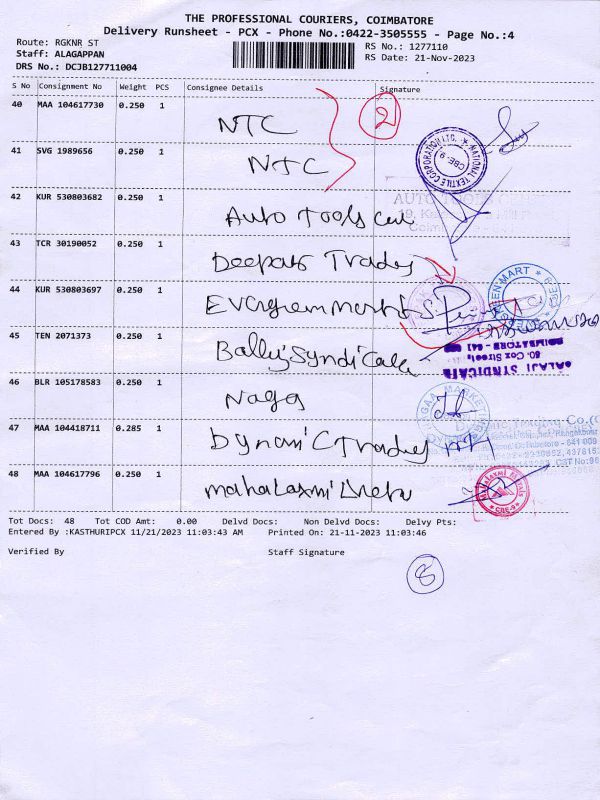 THE PROFESSIONAL COURIERS, COIMBATORE
Delivery Runsheet - PCX - Phone No.:0422-3505555 - Page No.:4
Route: RGKNR ST
Staff: ALAGAPPAN
DRS No.: DCJB127711004
RS No.: 1277110
RS Date: 21-Nov-2023
S No Consignment No Weight PCS Consignee Details Signature
40 MAA 104617730 0.250 1 NTC
2
41 SVG 1989656 0.250 1 NTC
NATIONAL TEXTILE CORPORATION LTD. CBE-9
42 KUR 530803682 0.250 1 Auto Tools
AUTO TOOLS
43 TCR 30190052 0.250 1 Deepak Trades
44 KUR 530803697 0.250 1 Evergreen Mart
GREEN MART
45 TEN 2071373 0.250 1 Syndicate
BALAJI SYNDICATE
60. Cox Street,
COIMBATORE - 641
46 BLR 105178583 0.250 1 Naga
47 MAA 104418711 0.285 1 Dynamic Trades
48 MAA 104617796 0.250 1 mahalaxmi
MAHALAXMI METALS CBE-9
Tot Docs: 48 Tot COD Amt: 0.00 Delvd Docs: Non Delvd Docs: Delvy Pts:
Entered By :KASTHURIPCX 11/21/2023 11:03:43 AM Printed On: 21-11-2023 11:03:46
Verified By Staff Signature
8